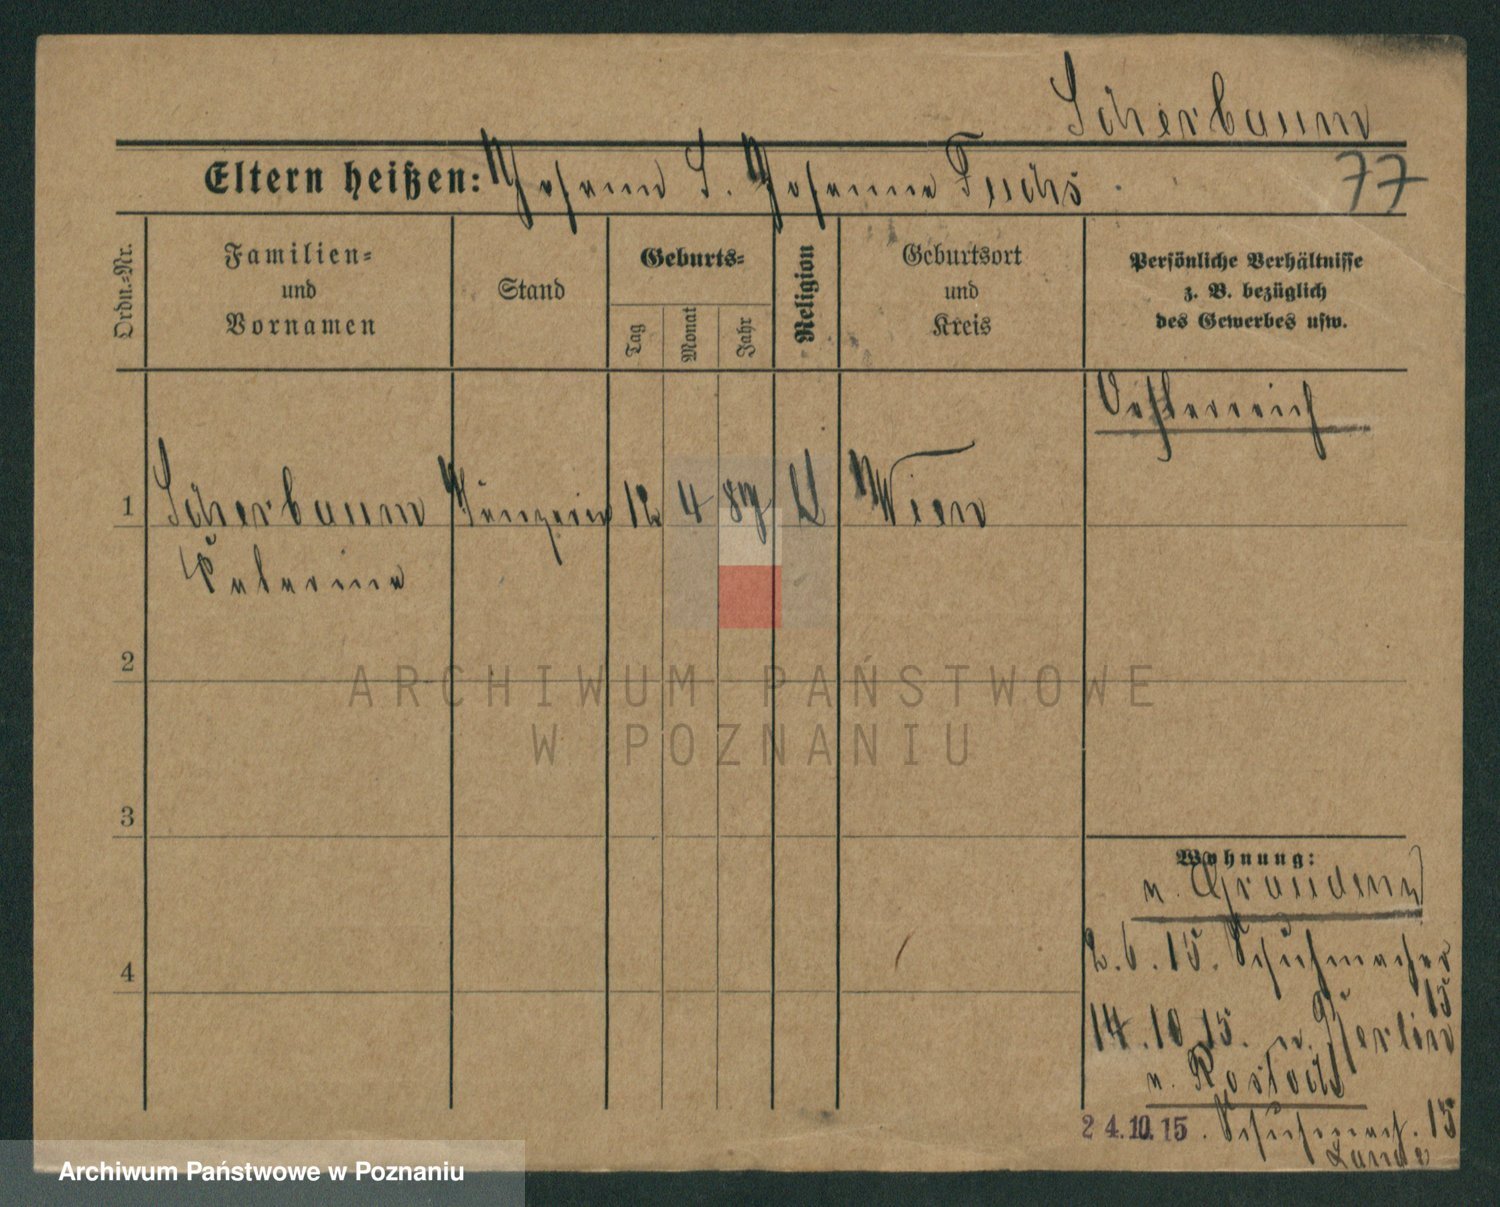 Scherbaum
77
Eltern heißen: Johann S. Johanna Fuchs
Ordn.-Nr.
Familien-
und
Vornamen
Stand
Geburts-
Tag
Monat
Jahr
Religion
Geburtsort
und
Kreis
Persönliche Verhältnisse
z. B. bezüglich
des Gewerbes usw.
Oesterreich
1 Scherbaum Tänzerin 12 4 87 Wien
Katarina
2
3
4
Wohnung:
n. Graudenz
2.6.15. Schuhmacher
15
14.10.15. n. Berlin
n. Rostock
24.10.15. Schuhmach. 15
ARCHIWUM PAŃSTWOWE
W POZNANIU
Archiwum Państwowe w Poznaniu